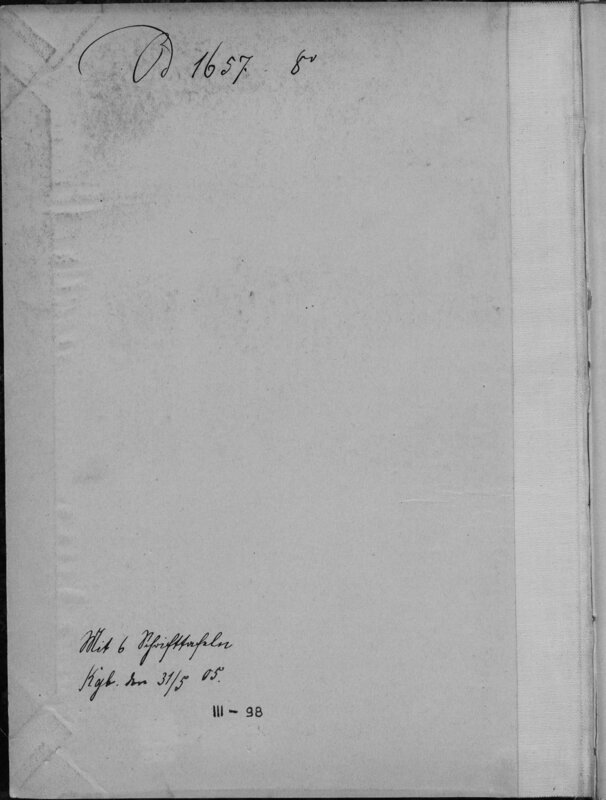 Bd 1657 8°
Mit 6 Schrifttafeln
Kgb. den 31/5 05.
III – 98